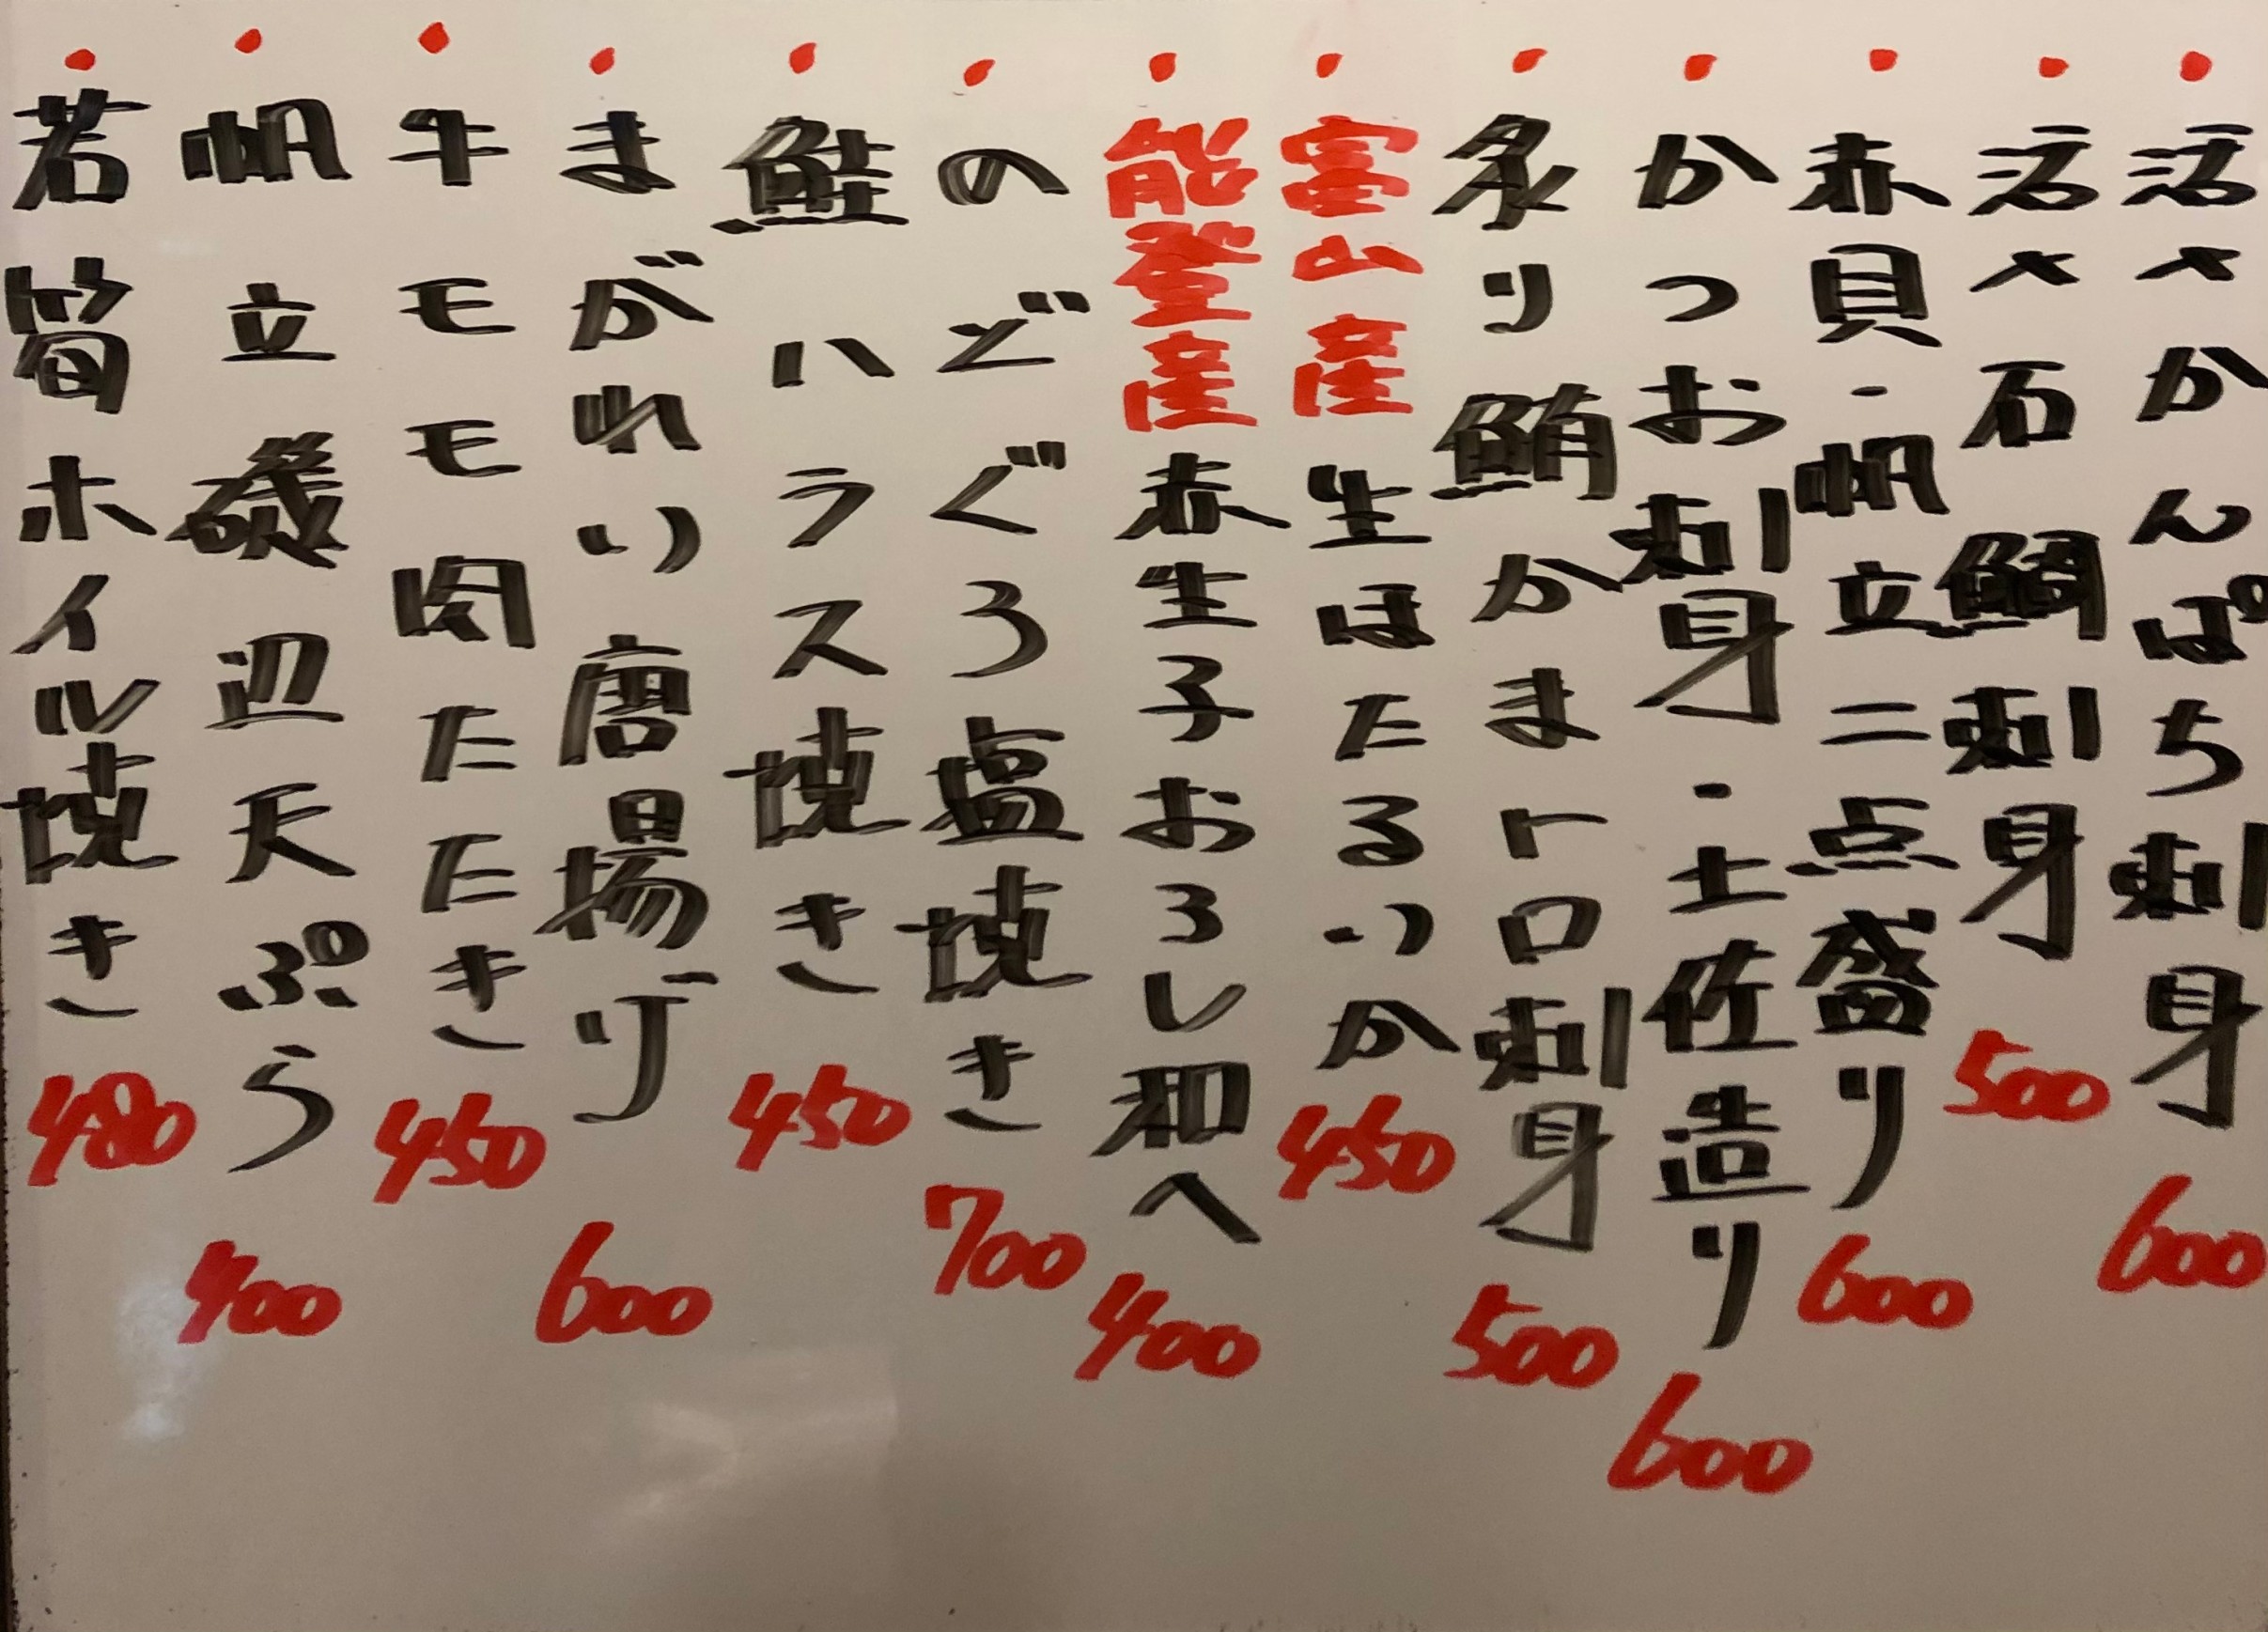 ・活〆かんぱち刺身 600
・活〆石鯛刺身 500
・赤貝・帆立二点盛り 600
・かつお刺身・土佐造り 600
・炙り鮪かまトロ刺身 500
・富山産生ほたるいか 450
・能登産赤生子おろし和へ 400
・のどぐろ塩焼き 700
・鮭ハラス焼き 450
・まがれい唐揚げ 600
・牛モモ肉たたき 450
・帆立磯辺天ぷら 400
・若筍ホイル焼き 480